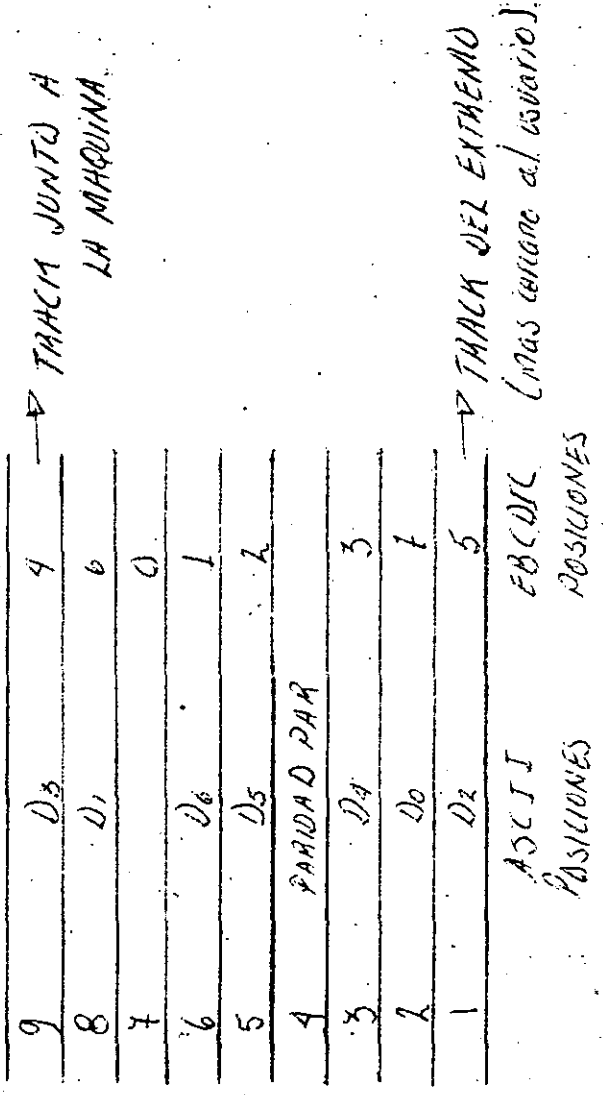 9 D3 4 → TRACK JUNTO A
LA MAQUINA
8 D1 6
7 0
6 D6 1
5 D5 2
4 PARIDAD PAR
3 D4 3
2 D0 7
1 D2 5 → TRACK DEL EXTREMO
(mas cercano al usuario).
ASCII EBCDIC
POSICIONES POSICIONES